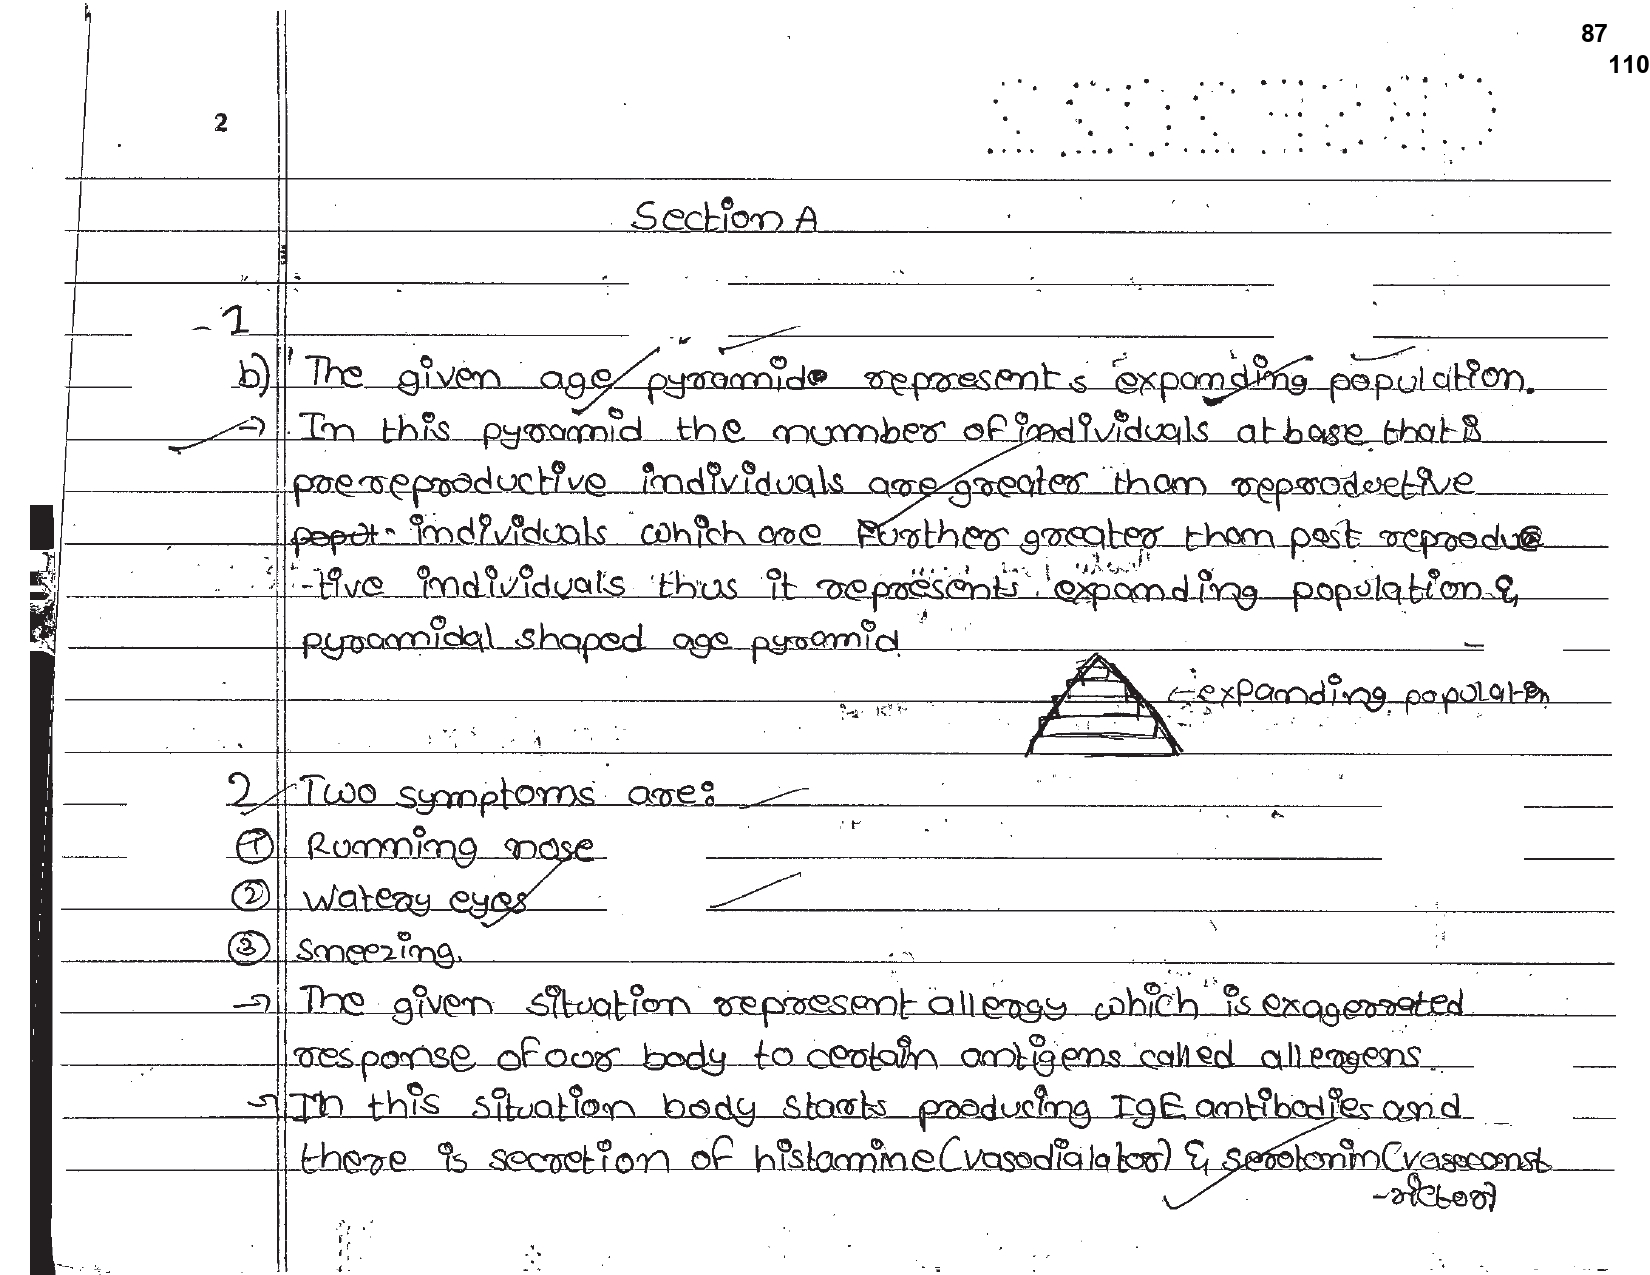 87
110
2
Section A
-1
b) The given age pyramid represents expanding population.
→ In this pyramid the number of individuals at base that is
prereproductive individuals are greater than reproductive
popul- individuals which are further greater than post reproduc
-tive individuals thus it represents expanding population &
pyramidal shaped age pyramid
←expanding population
2 Two symptoms are:
① Running nose
② Watery eyes
③ Sneezing.
→ The given situation represent allergy which is exagerrated
response of our body to certain antigens called allergens.
→ In this situation body starts producing IgE antibodies and
there is secretion of histamine (vasodialator) & serotonin (vasoconst
-rictor)